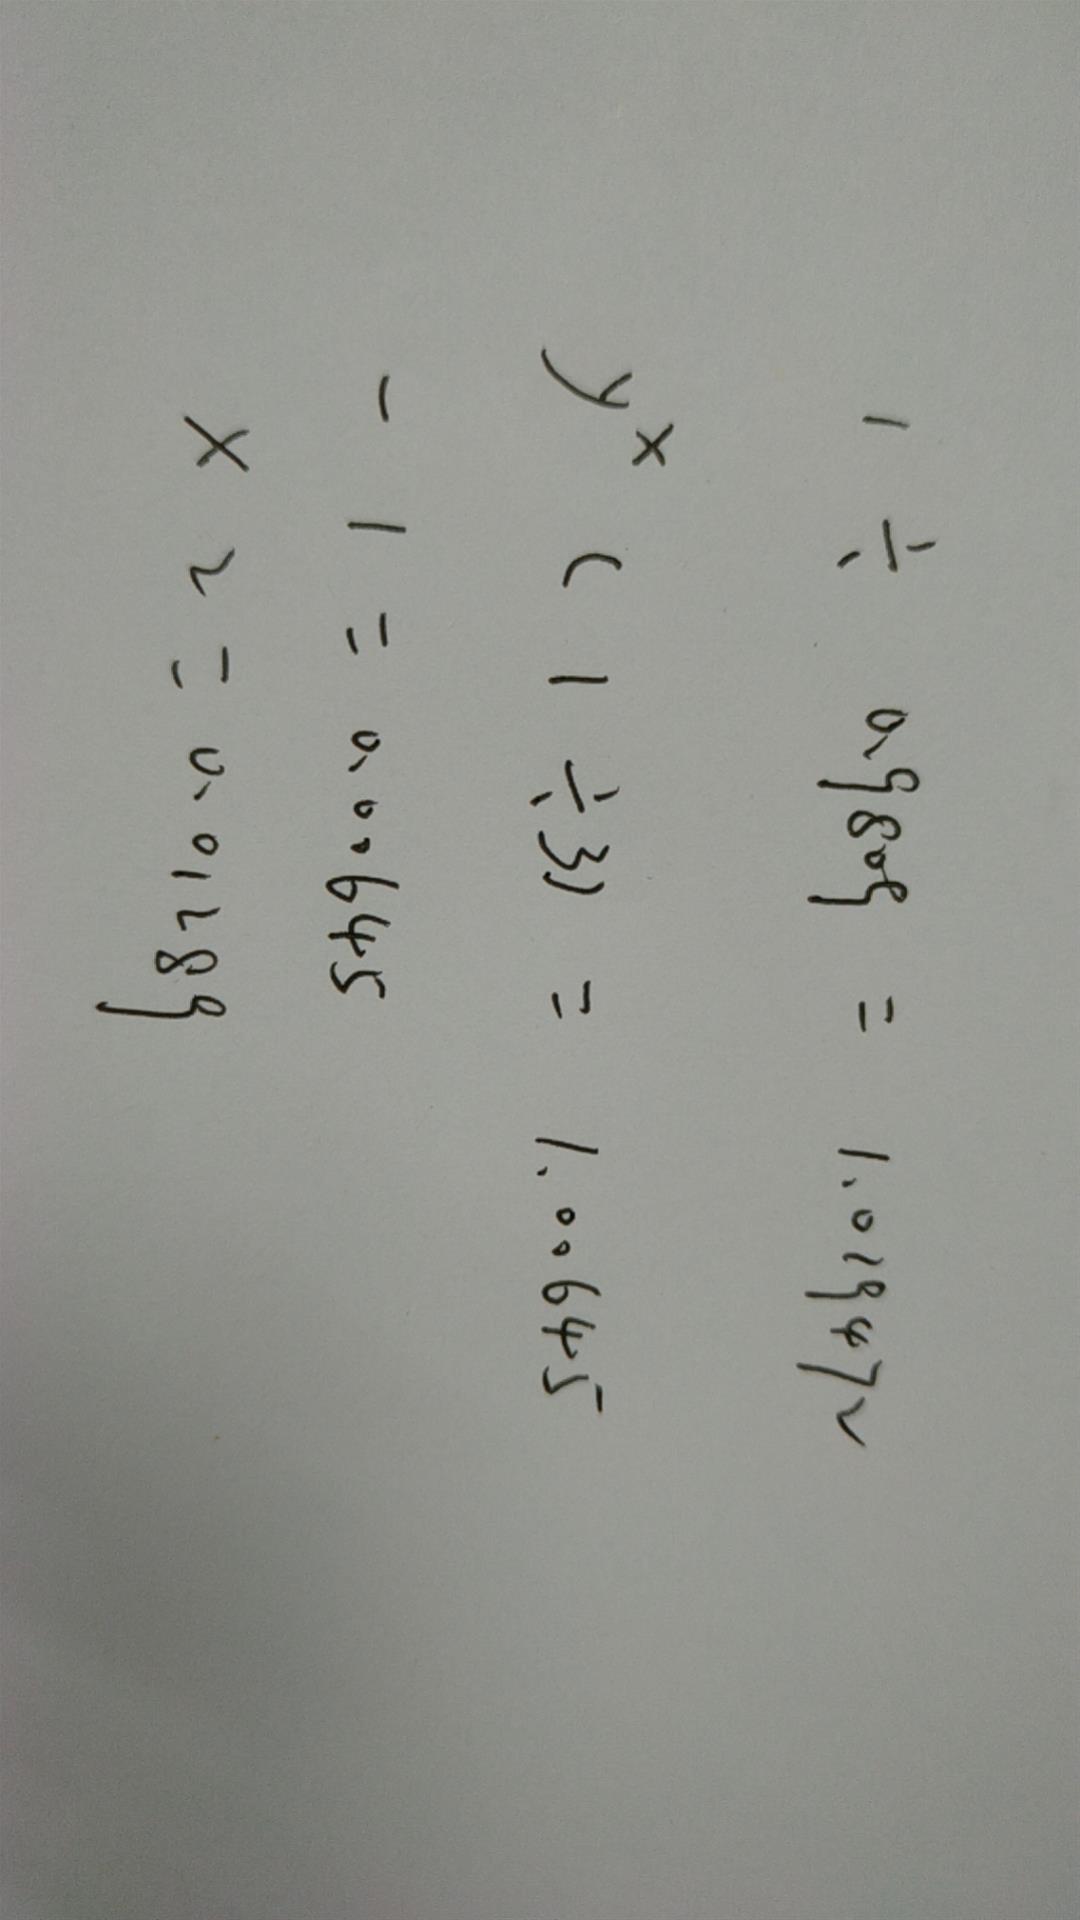 1 ÷ 0.9809 = 1.019472
yˣ (1÷3) = 1.00645
- 1 = 0.00645
× 2 = 0.01289